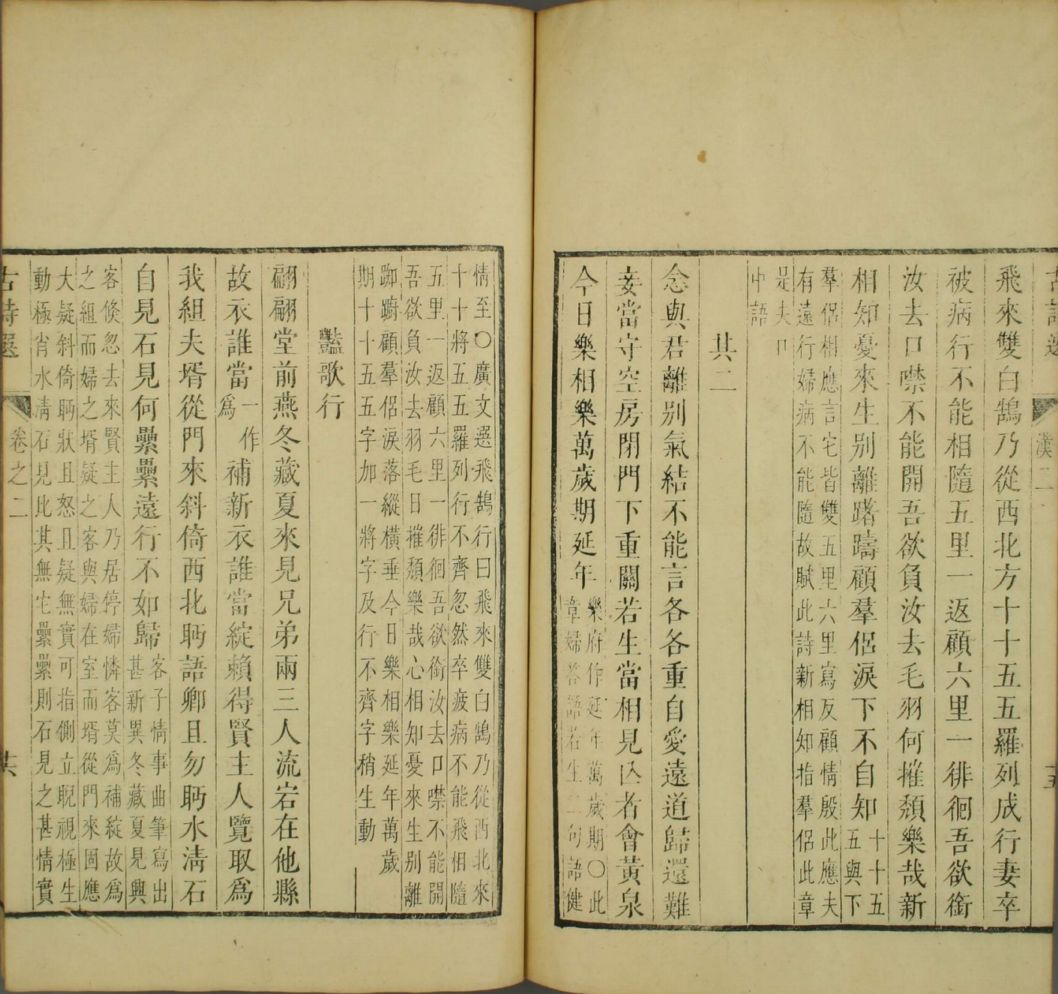 漢二
飛來雙白鵠乃從西北方十十五五羅列成行妻卒
被病行不能相隨五里一返顧六里一徘徊吾欲銜
汝去口噤不能開吾欲負汝去毛羽何摧頹樂哉新
相知憂來生別離躇躊顧羣侶淚下不自知
十十五
五與下
羣侶相應言它皆雙五里六里寫反顧情殷此應夫
有遠行婦病不能隨故賦此詩新相知指羣侶此章
是夫口
中語
其二
念與君離別氣結不能言各各重自愛遠道歸還難
妾當守空房閉門下重關若生當相見亾者會黃泉
今日樂相樂萬歲期延年
樂府作延年萬歲期〇此
章婦答語若生二句語健
情至〇廣文選飛鵠行曰飛來雙白鵠乃從西北來
十十將五五羅列行不齊忽然卒疲病不能飛相隨
五里一返顧六里一徘徊吾欲銜汝去口噤不能開
吾欲負汝去羽毛日摧頹樂哉心相知憂來生别離
踟躊顧羣侶淚落縱橫垂今日樂相樂延年萬歲
期十十五五字加一將字及行不齊字稍生動
豔歌行
翩翩堂前燕冬藏夏來見兄弟兩三人流宕在他縣
故衣誰當
一作
爲
補新衣誰當綻賴得賢主人覽取爲
我組夫壻從門來斜倚西北眄語卿且勿眄水淸石
自見石見何纍纍遠行不如歸
客子情事曲筆寫出
甚新異冬藏夏見興
客倏忽去來賢主人乃居停婦憐客莫爲補綻故爲
之組而婦之壻疑之客與婦在室而壻從門來固應
大疑斜倚眄狀且怒且疑無實可指側立睨視極生
動極肖水淸石見比其無它纍纍則石見之甚情實
古詩選
卷之二